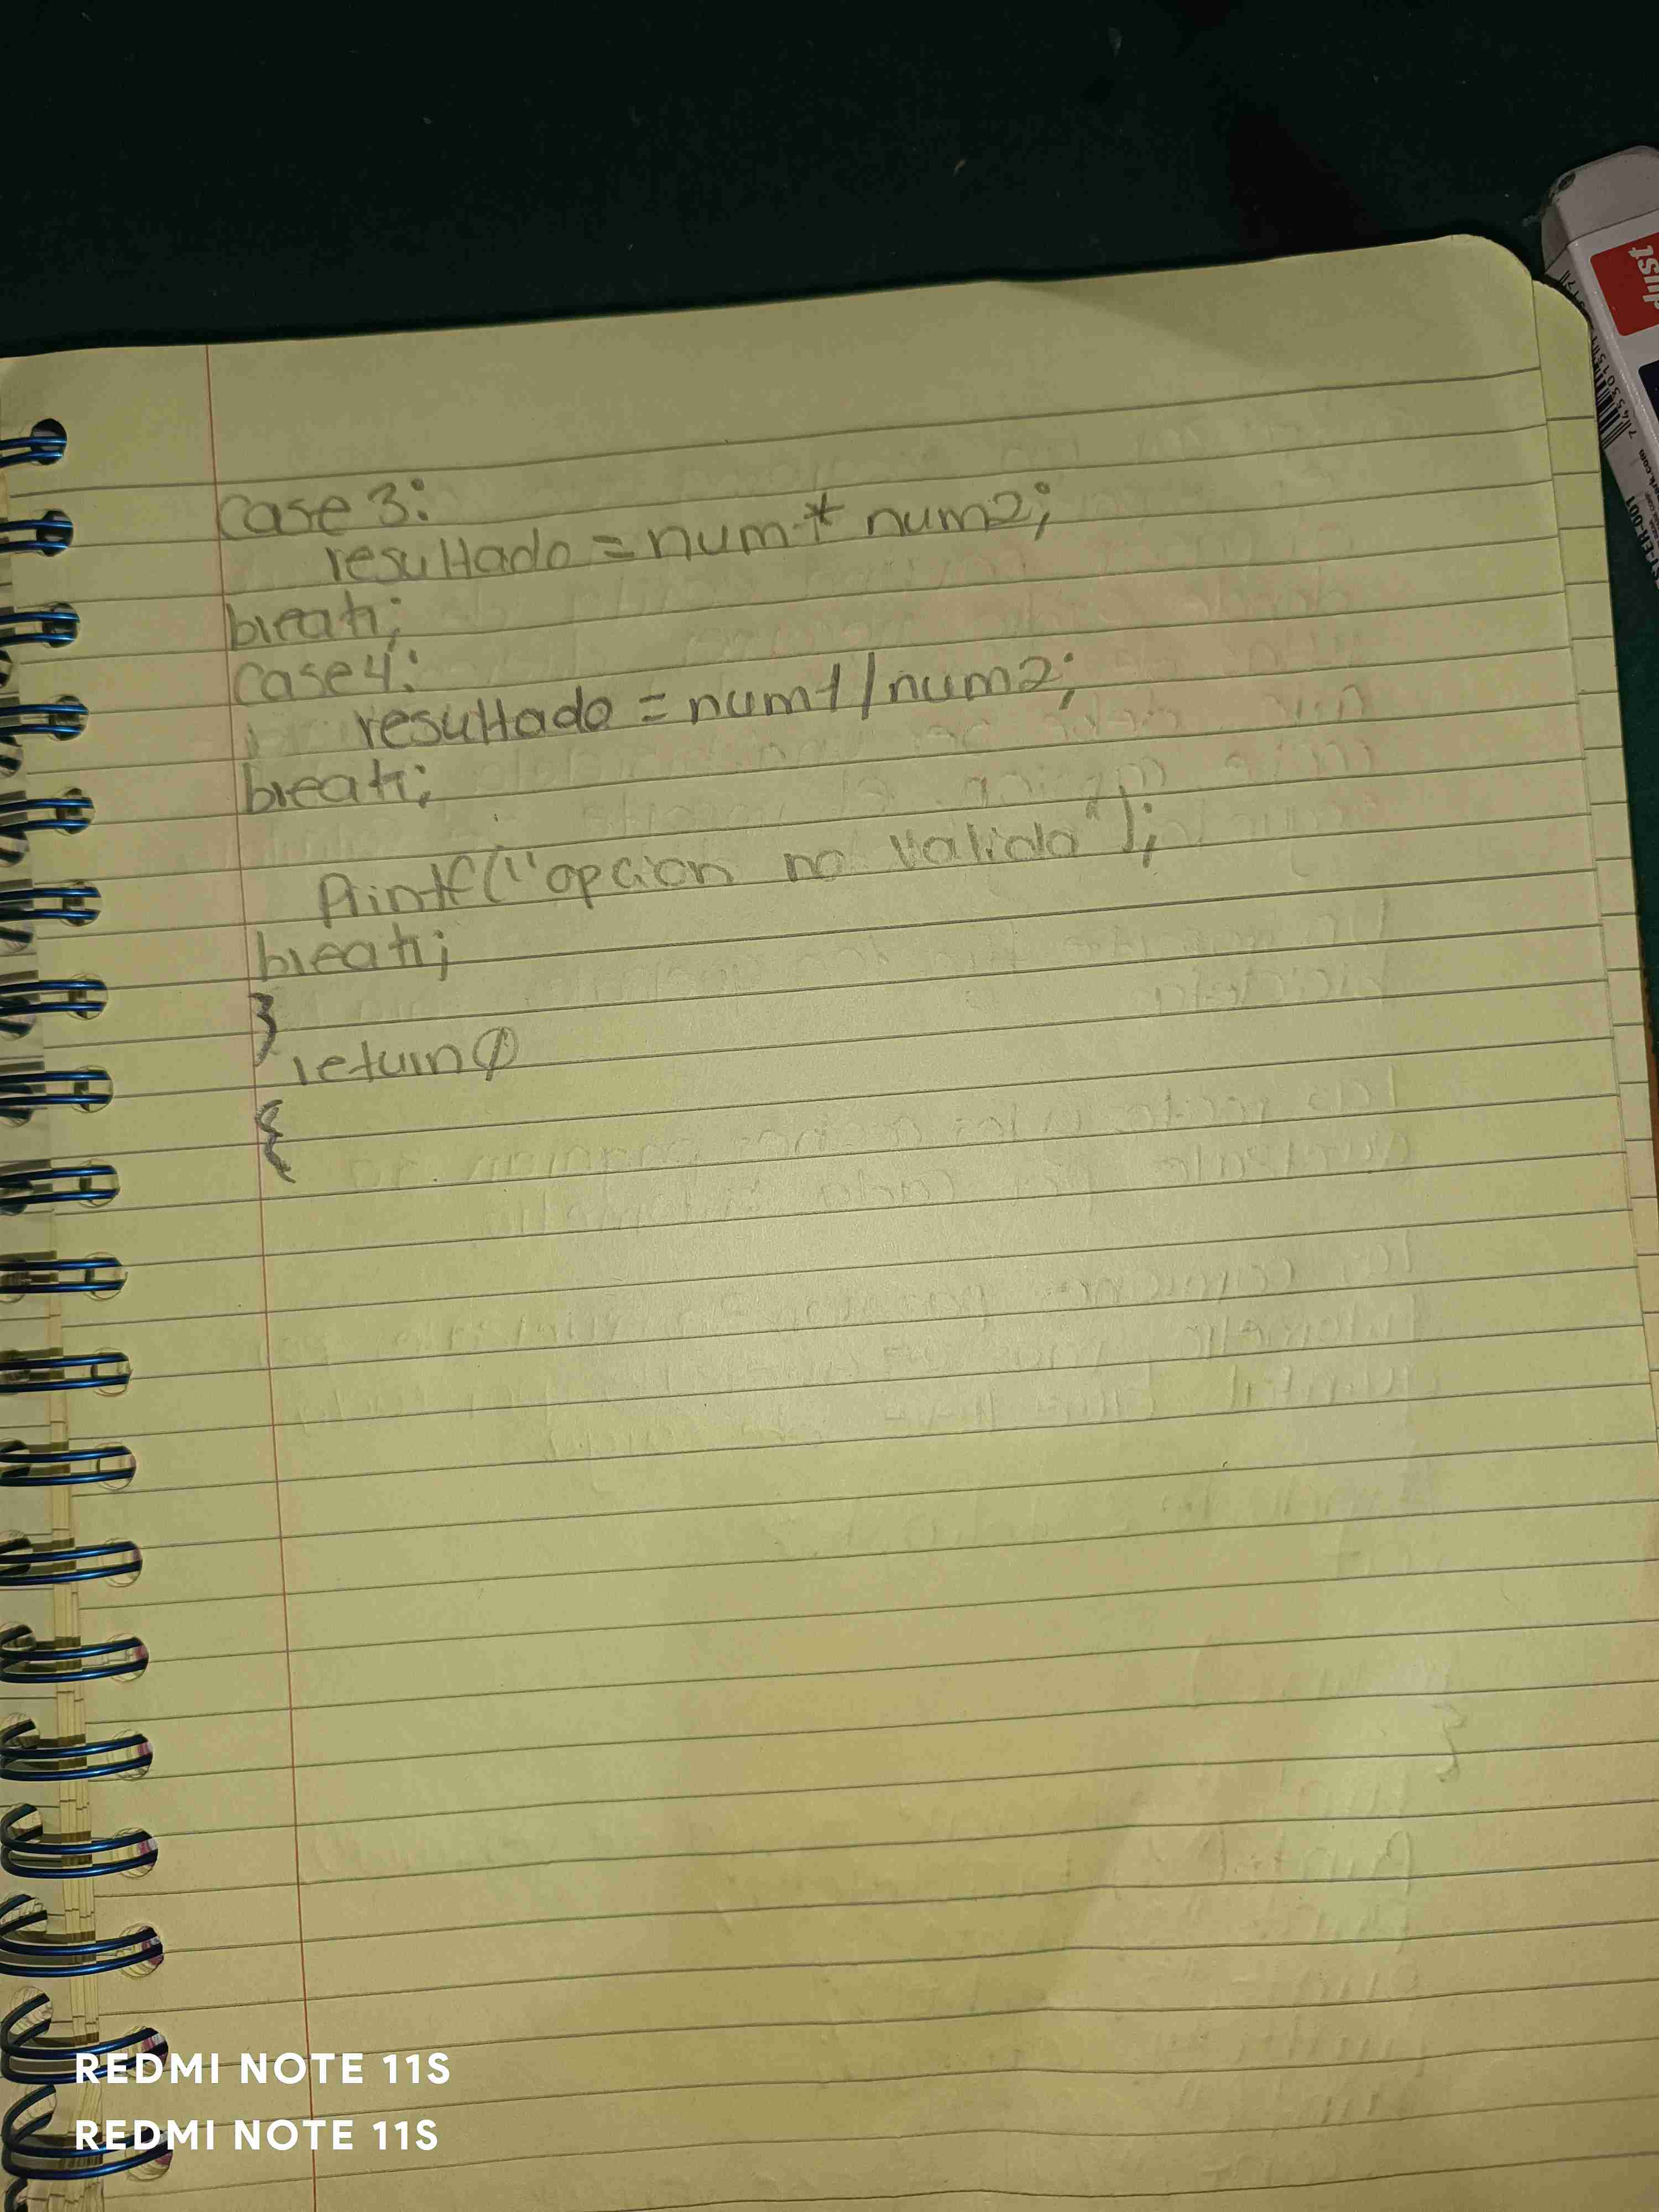 case 3:
resultado = num1* num2;
break;
case 4:
resultado = num1/num2;
break;
Printf("opcion no valido");
break;
}
return 0
{
dust
REDMI NOTE 11S
REDMI NOTE 11S